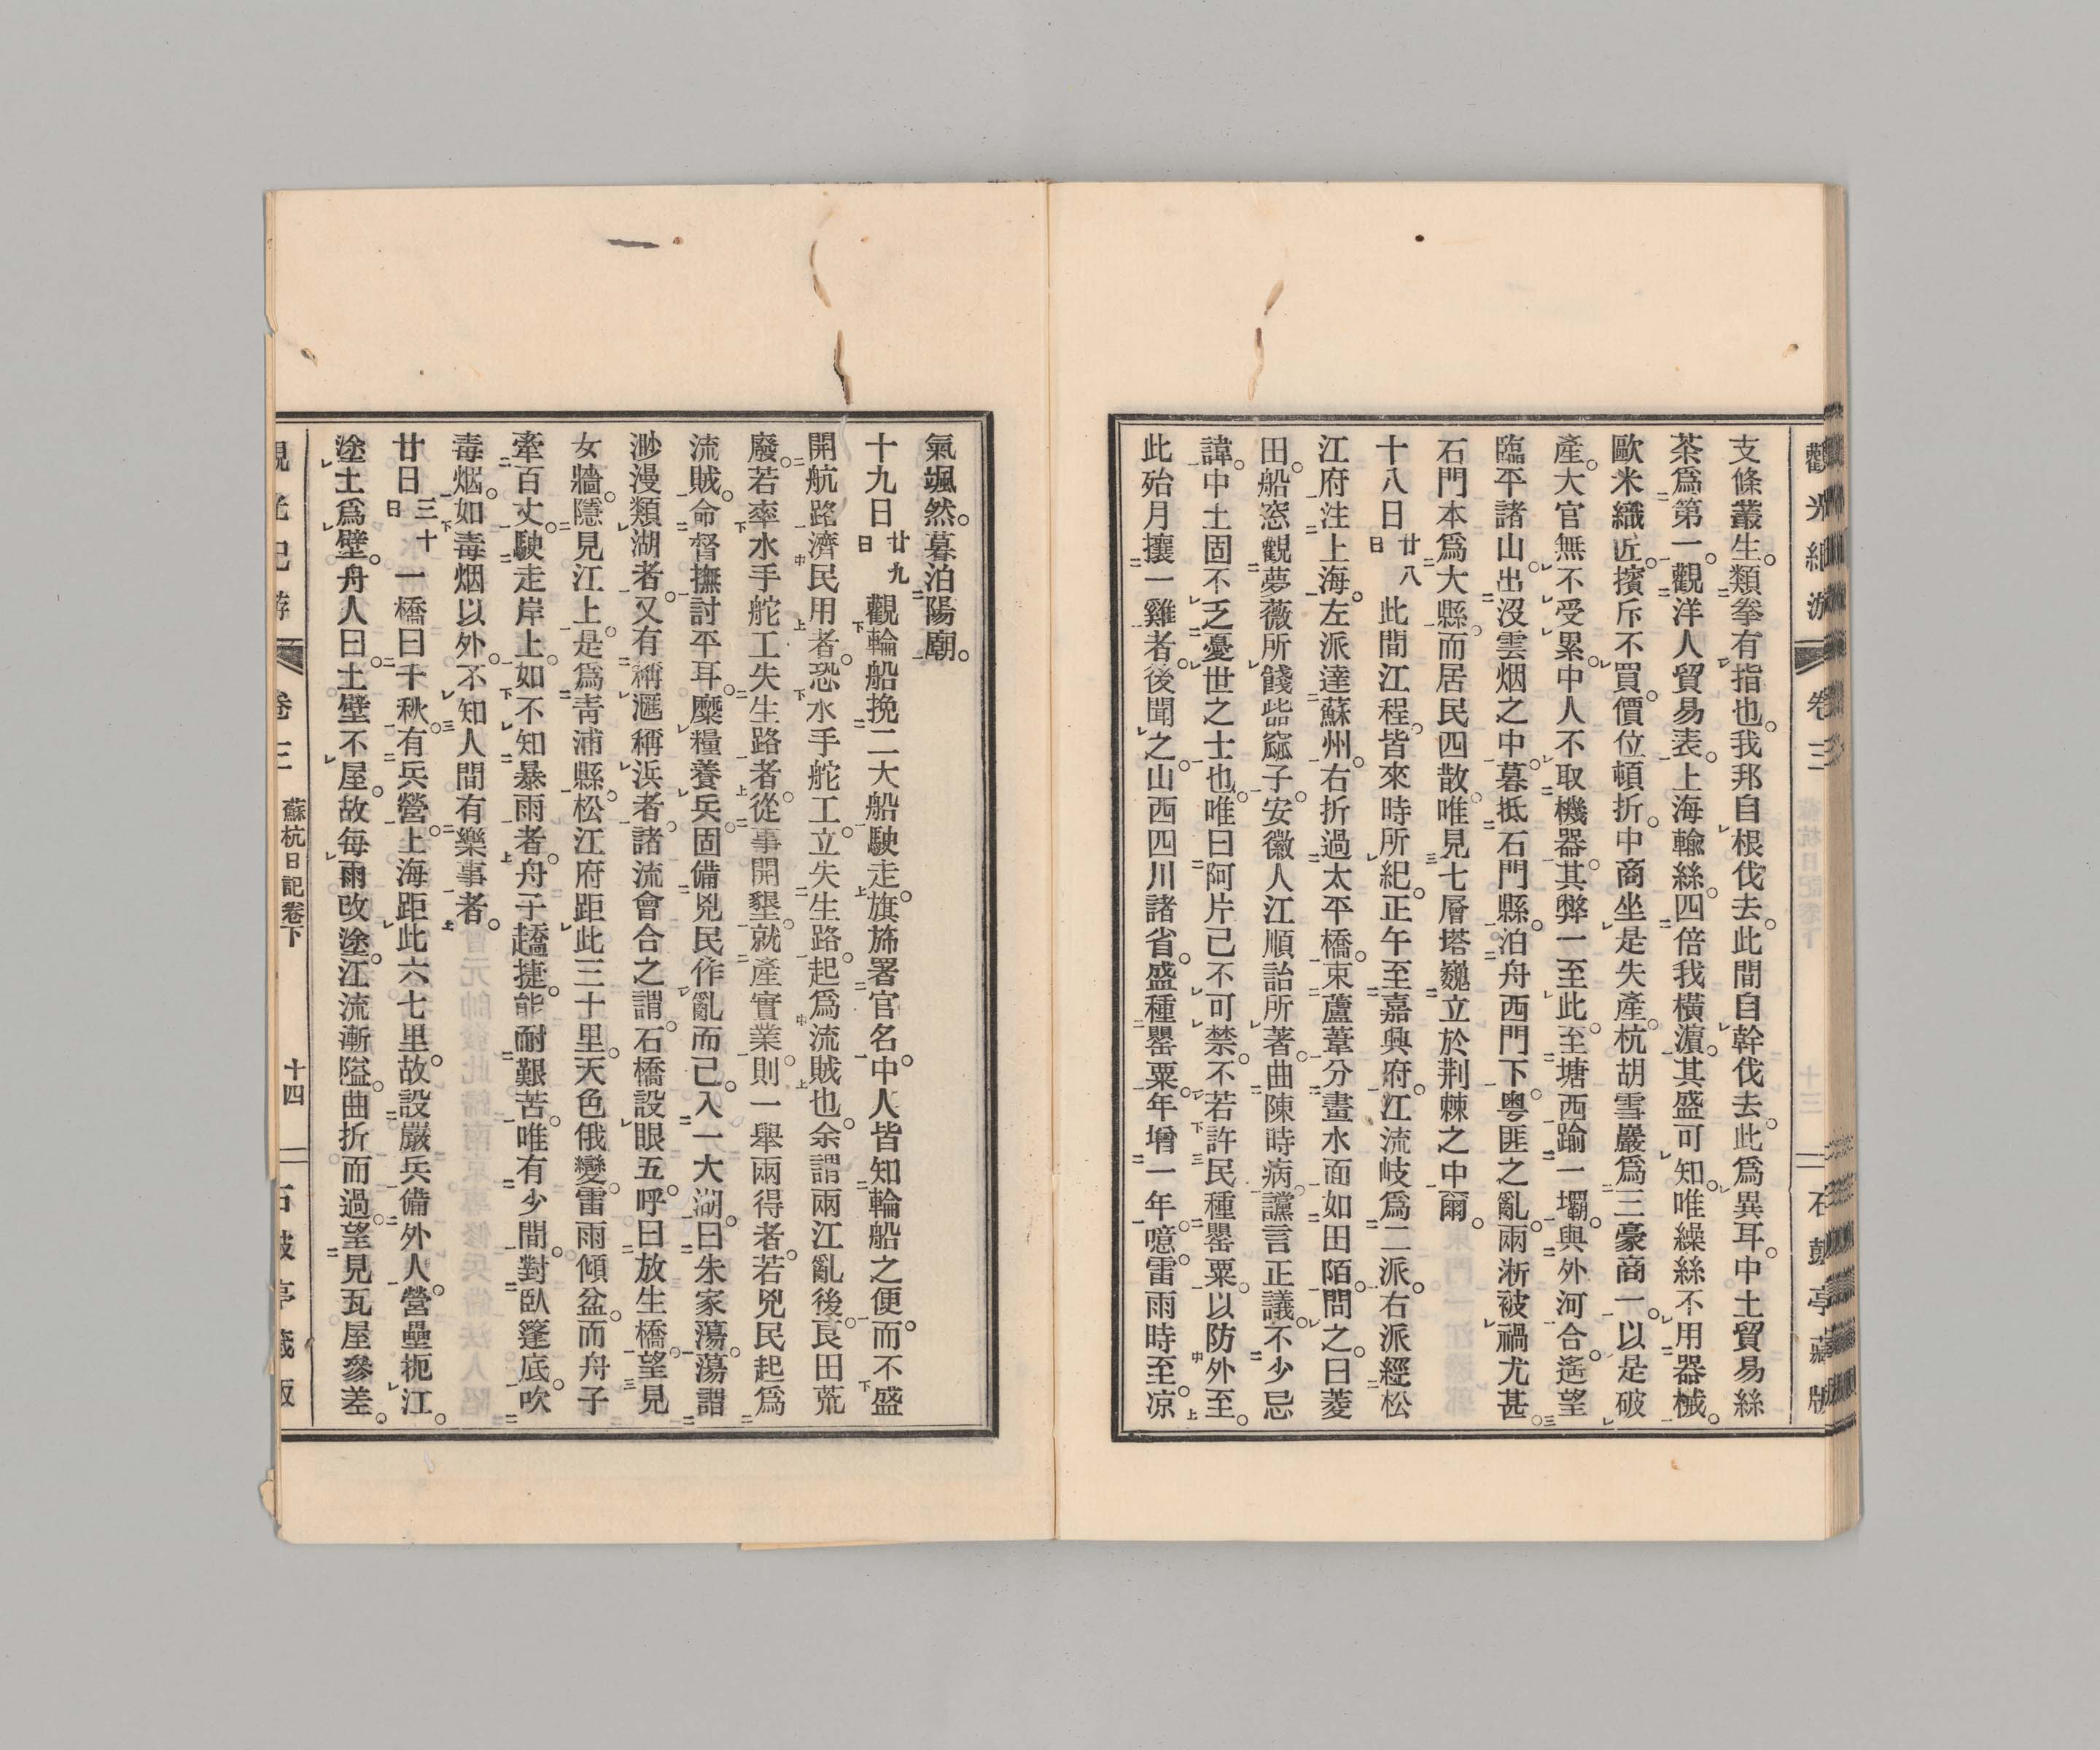 支條叢生。類拳有指也。我邦自根伐去。此間自幹伐去。此爲異耳。中土貿易絲
茶爲第一。觀洋人貿易表。上海輸絲。四倍我橫濵。其盛可知。唯繰絲不用器械。
歐米織匠。擯斥不買。價位頓折。中商坐是失產。杭胡雪巖爲三豪商一。以是破
產。大官無不受累。中人不取機器。其弊一至此。至塘西踰一壩。與外河合。遙望
臨平諸山。出沒雲烟之中。暮抵石門縣。泊舟西門下。粵匪之亂。兩淅被禍尤甚。
石門本爲大縣。而居民四散。唯見七層塔巍立於荆棘之中爾。
十八日廿八日此間江程。皆來時所紀。正午至嘉興府。江流岐爲二派。右派經松
江府注上海。左派達蘇州。右折過太平橋。束蘆葦分畫水面如田陌。問之。曰菱
田。船窓觀夢薇所餞呰窳子。安徽人江順詒所著。曲陳時病。讜言正議。不少忌
諱。中土固不乏憂世之士也。唯曰阿片已不可禁。不若許民種罌粟。以防外至。
此殆月攘一雞者。後聞之。山西四川諸省。盛種罌粟。年增一年。噫。雷雨時至。凉
氣颯然。暮泊陽廟。
十九日廿九日觀輪船挽二大船駛走。旗旆署官名。中人皆知輪船之便。而不盛
開航路濟民用者。恐水手舵工立失生路。起爲流賊也。余謂兩江亂後。良田荒
廢。若率水手舵工失生路者。從事開墾。就產實業。則一舉兩得者。若兇民起爲
流賊。命督撫討平耳。糜糧養兵。固備兇民作亂而已。入一大湖。曰朱家蕩。蕩謂
渺漫類湖者。又有稱滙稱浜者。諸流會合之謂。石橋設眼五。呼曰放生橋。望見
女牆。隱見江上。是爲靑浦縣。松江府距此三十里。天色俄變。雷雨傾盆。而舟子
牽百丈。駛走岸上。如不知暴雨者。舟子趫捷。能耐艱苦。唯有少間。對臥篷底。吹
毒烟。如毒烟以外。不知人間有樂事者。
廿日三十日一橋曰千秋。有兵營。上海距此六七里。故設嚴兵備外人。營壘扼江。
塗土爲壁。舟人曰土壁不屋。故每雨改塗。江流漸隘。曲折而過。望見瓦屋參差。
卷三
蘇杭日記卷下
十四